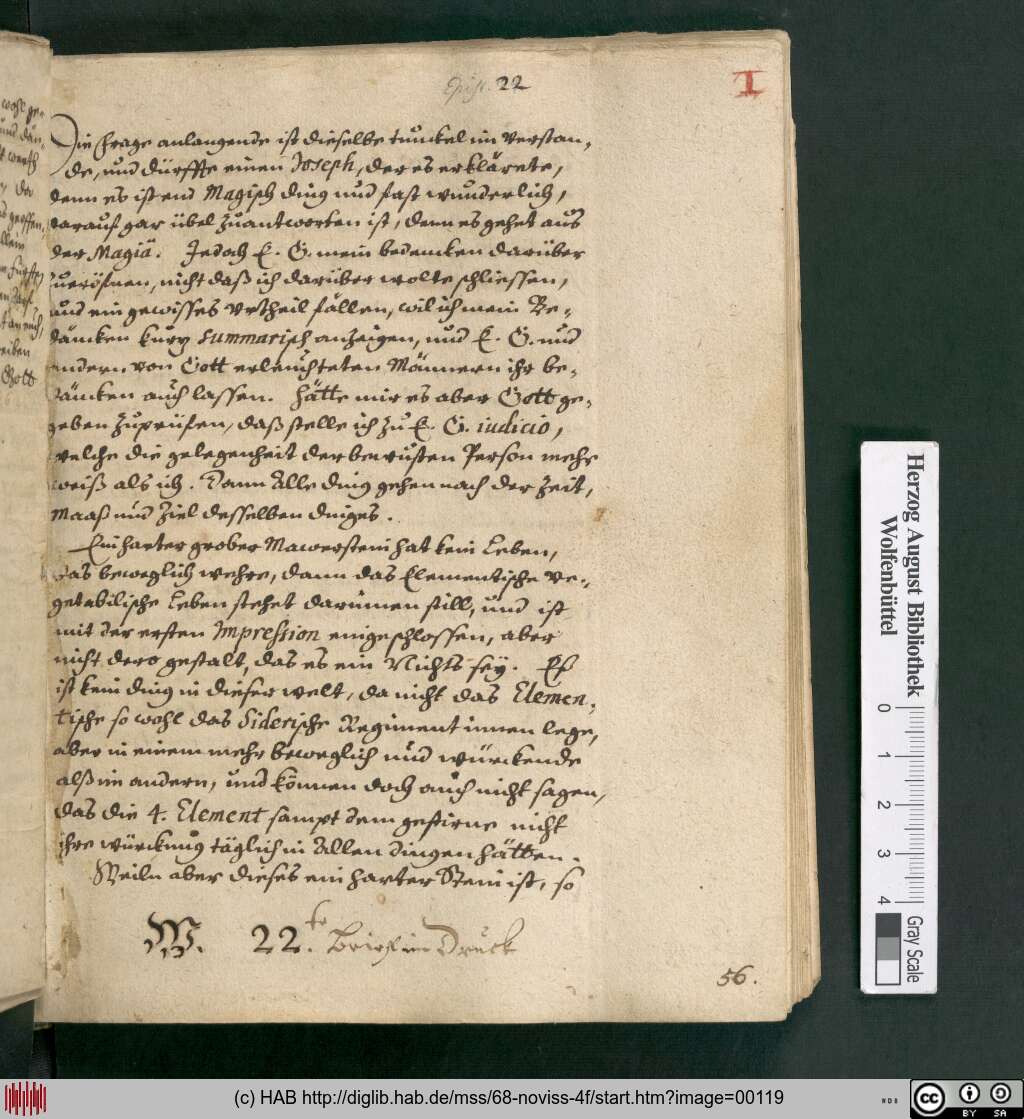 Epist. 22
I
Die Frage anlangende ist dieselbe tunckel im verstan,
de, und dürffte einen Joseph, der es erklärete,
denn es ist ein Magisch ding und fast wunderlich,
darauf gar übel zuantworten ist, denn es gehet aus
der Magiâ. Jedoch E. G. mein bedencken darüber
zueröfnen, nicht daß ich darüber wolte schliessen,
und ein gewisses Urtheil fällen, wil ich mein Be,
däncken kurtz summarisch anzeigen, und E. G. und
andern von Gott erleuchteten Männern ihr be,
däncken auch lassen. Hätte mir es aber Gott ge,
geben zuprüfen, daß stelle ich zu E. G. iudicio,
welche die gelegenheit der bewusten Person mehr
weiß als ich. Dann Alle ding gehen nach der Zeit,
Maaß und Ziel desselben dinges.
Ein harter grober Mawerstein hat kein Leben,
das beweglich wehre, dann das Elementische ve,
getabilische Leben stehet darinnen still, und ist
mit der ersten Impression eingeschlossen, aber
nicht dero gestalt, das es ein Nichts sey. Eß
ist kein ding in dieser welt, da nicht das Elemen,
tische so wohl das Siderische Regiment innen lege,
aber in einem mehr beweglich und würckende
alß im andern, und können doch auch nicht sagen,
das die 4. Element sampt dem gestirne nicht
ihre würckung täglich in Allen dingen hätten.
Weiln aber dieses ein harter Stein ist, so
W. 22.te Brief im Druck
56.
Herzog August Bibliothek
Wolfenbüttel
0 1 2 3 4
Gray Scale
(c) HAB http://diglib.hab.de/mss/68-noviss-4f/start.htm?image=00119
WDB
cc BY SA